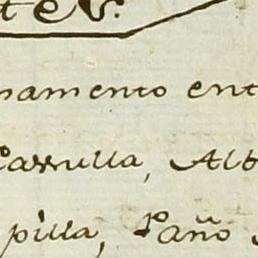 te N.
namento ent
Casulla, Alb
pilla, Paño